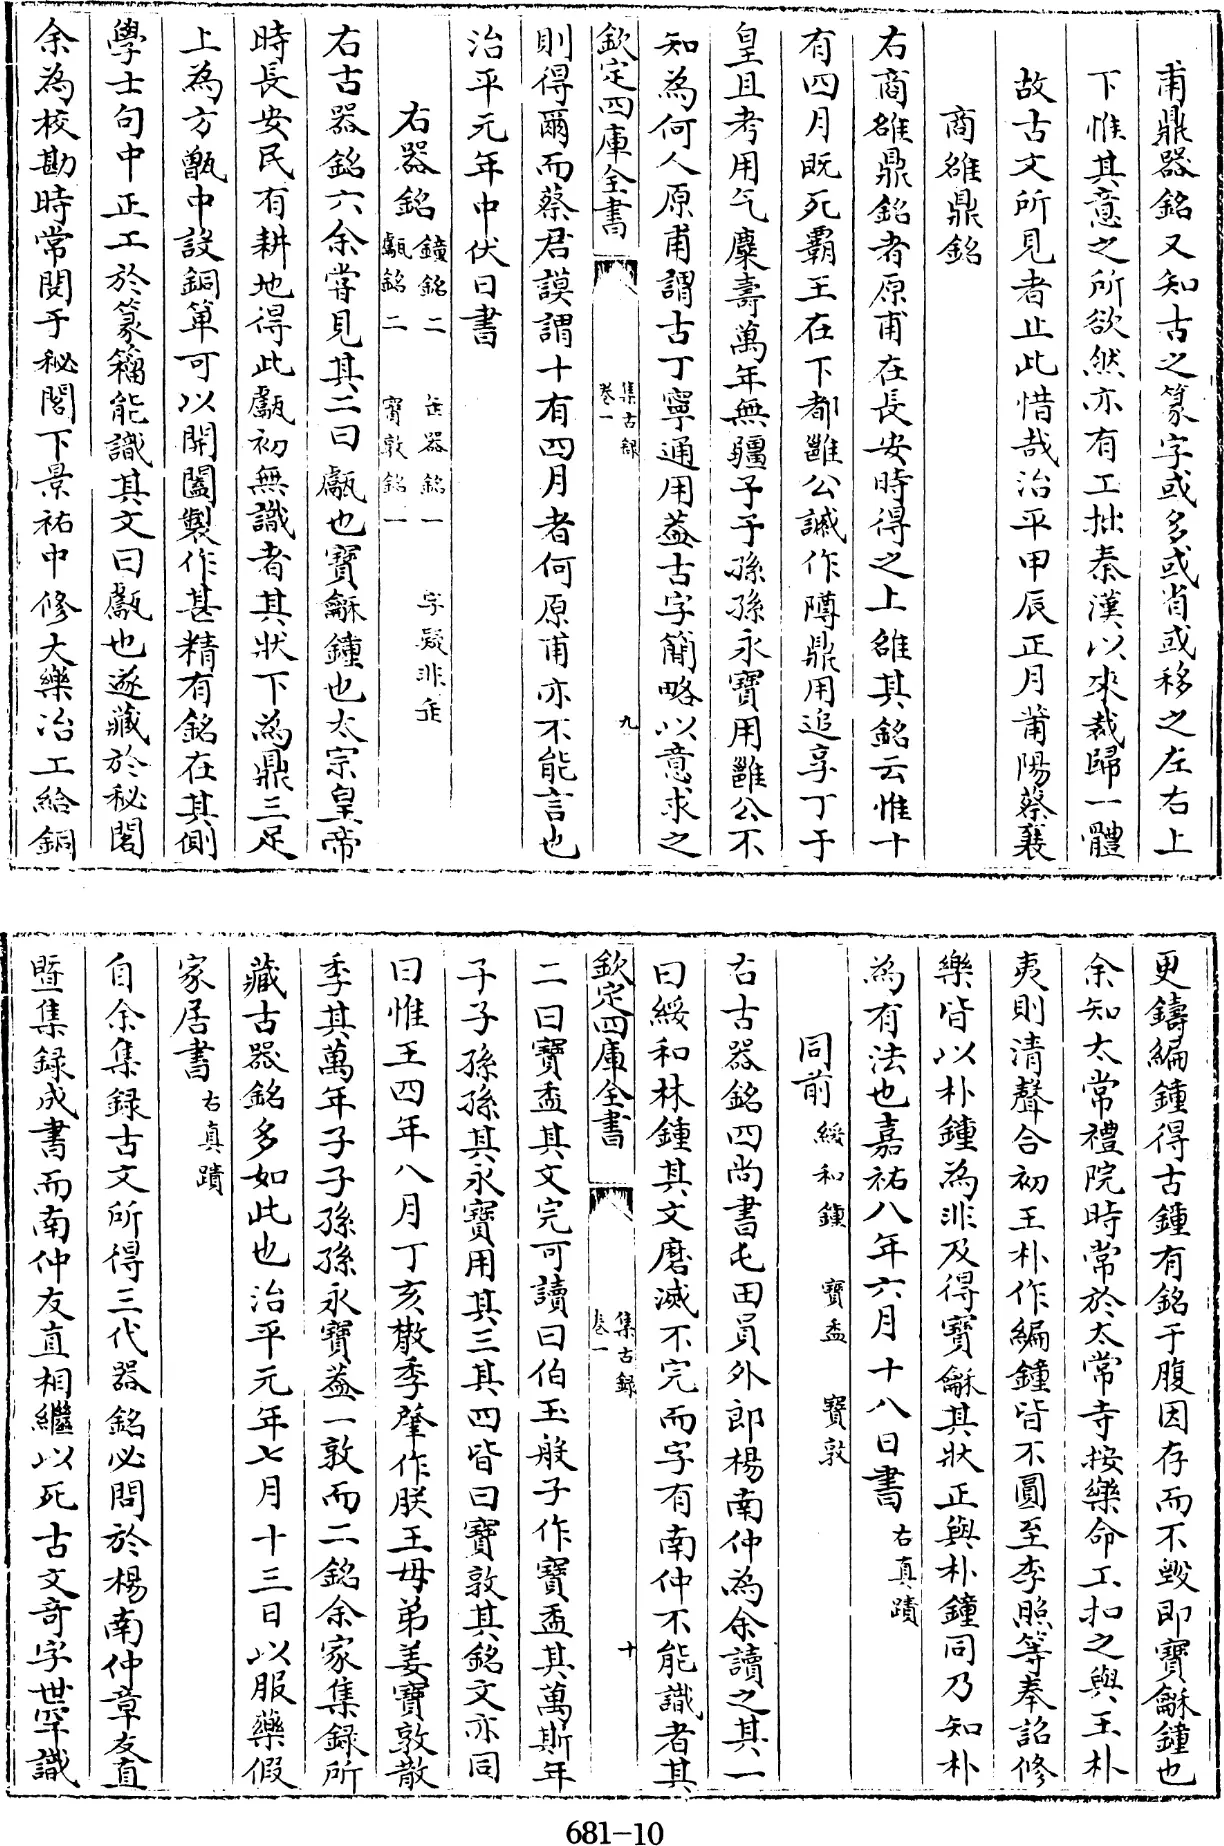 甫鼎器銘又知古之篆字或多或省或移之左右上
下惟其意之所欲然亦有工拙秦漢以來裁歸一體
故古文所見者止此惜哉治平甲辰正月莆陽蔡襄
商雒鼎銘
右商雒鼎銘者原甫在長安時得之上雒其銘云惟十
有四月既死霸王在下都雝公諴作隣鼎用追享丁于
皇且考用气麋壽萬年無疆子子孫孫永寶用雝公不
知為何人原甫謂古丁寧通用葢古字簡略以意求之
欽定四庫全書
集古録
卷一
九
則得爾而蔡君謨謂十有四月者何原甫亦不能言也
治平元年中伏日書
右器銘 鐘銘二 缶器銘一 字疑非缶
甗銘二 寶敦銘一
右古器銘六余嘗見其二曰甗也寶龢鐘也太宗皇帝
時長安民有耕地得此甗初無識者其狀下為鼎三足
上為方甑中設銅箄可以開闔製作甚精有銘在其側
學士句中正工於篆籀能識其文曰甗也遂藏於秘閣
余為校勘時常閱于秘閣下景祐中修大樂冶工給銅
更鑄編鐘得古鐘有銘于腹因存而不毀即寶龢鐘也
余知太常禮院時常於太常寺按樂命工扣之與王朴
夷則清聲合初王朴作編鐘皆不圓至李照等奉詔修
樂皆以朴鐘為非及得寶龢其狀正與朴鐘同乃知朴
為有法也嘉祐八年六月十八日書 右真蹟
同前 綏和鐘 寶盉 寶敦
右古器銘四尚書屯田員外郎楊南仲為余讀之其一
曰綏和林鐘其文磨滅不完而字有南仲不能識者其
欽定四庫全書
集古録
卷一
十
二曰寶盉其文完可讀曰伯玉般子作寶盉其萬斯年
子子孫孫其永寶用其三其四皆曰寶敦其銘文亦同
曰惟王四年八月丁亥散季肈作朕王母弟姜寶敦散
季其萬年子子孫孫永寶葢一敦而二銘余家集録所
藏古器銘多如此也治平元年七月十三日以服藥假
家居書 右真蹟
自余集録古文所得三代器銘必問於楊南仲章友直
暨集録成書而南仲友直相繼以死古文奇字世罕識
681-10